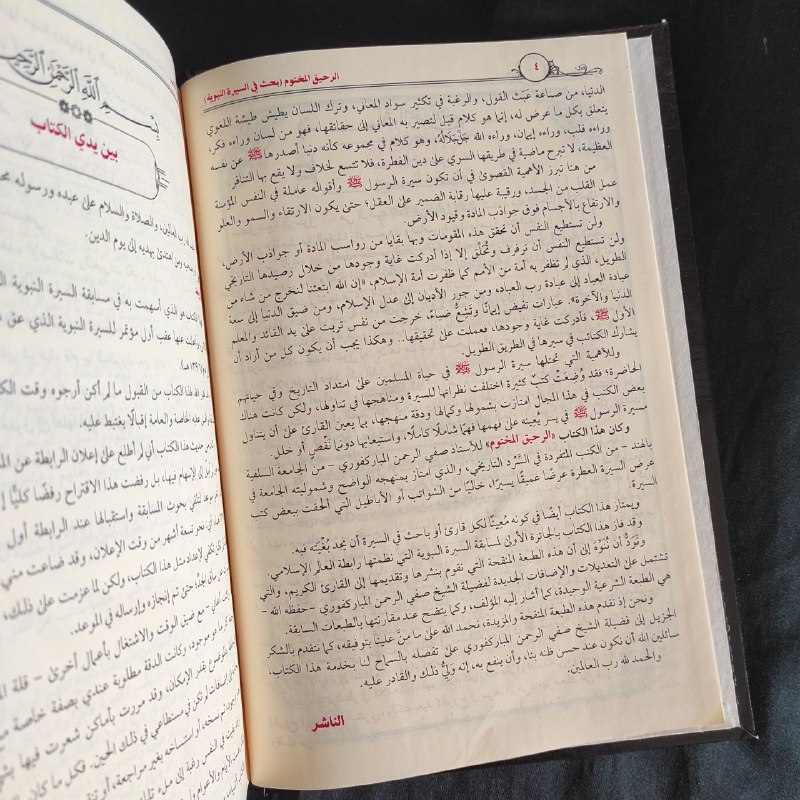 ٤
الرحيق المختوم (بحث في السيرة النبوية)
الدنيا، من صناعة عَبَث القول، والرغبة في تكثير سواد المعاني، وترك اللسان يطيش طيشه اللغوي
يتعلق بكل ما عرض له، إنما هو كلام قيل لتصير به المعاني إلى حقائقها، فهو من لسان وراءه فكر،
وراءه قلب، وراءه إيمان، وراءه الله جَلَّ جَلَالُهُ، وهو كلام في مجموعه كأنه دنيا أصدرها ﷺ عن نفسه
العظيمة، لا تبرح ماضية في طريقها السوي على دين الفطرة، فلا تتسع لخلاف ولا يقع بها التنافر.
من هنا تبرز الأهمية القصوى في أن تكون سيرة الرسول ﷺ وأقواله عاملة في النفس المؤمنة
عمل القلب من الجسد، ورقيبة عليها رقابة الضمير على العقل؛ حتى يكون الارتقاء والسمو والعلو
والارتفاع بالأجسام فوق جواذب المادة وقيود الأرض.
ولن تستطيع النفس أن تحقق هذه المقومات وبها بقايا من رواسب المادة أو جواذب الأرض،
ولن تستطيع النفس أن ترفرف وتُحلِّق إلا إذا أدركت غاية وجودها من خلال رصيدها التاريخي
الطويل، الذي لم تظفر به أمة من الأمم كما ظفرت أمة الإسلام، «إن الله ابتعثنا لنخرج من شاء من
عبادة العباد إلى عبادة رب العباد، ومن جور الأديان إلى عدل الإسلام، ومن ضيق الدنيا إلى سعة
الدنيا والآخرة». عبارات تفيض إيمانًا وتشِعُّ ضياءً، خرجت من نفس تربت على يد القائد والمعلم
الأول ﷺ، فأدركت غاية وجودها، فعملت على تحقيقها.. وهكذا يجب أن يكون كل من أراد أن
يشارك الكتائب في سيرها في الطريق الطويل.
وللأهمية التي تحتلها سيرة الرسول ﷺ في حياة المسلمين على امتداد التاريخ وفي حياتهم
الحاضرة؛ فقد وُضِعَتْ كتبٌ كثيرة اختلفت نظراتها للسيرة ومناهجها في تناولها، ولكن كانت هناك
بعض الكتب في هذا المجال امتازت بشمولها وكمالها ودقة منهجها، بما يعين القارئ على أن يتناول
مسيرة الرسول ﷺ في يسر يُعينه على فهمها فهمًا شاملًا كاملًا، واستيعابها دونما نَقْصٍ أو خلل.
وكان هذا الكتاب «الرحيق المختوم» للأستاذ صفي الرحمن المباركفوري - من الجامعة السلفية
بالهند - من الكتب المتفردة في السَّرْد التاريخي، والذي امتاز بمنهجه الواضح وشموليته الجامعة في
عرض السيرة العطرة عرضًا عميقًا يسيرًا، خاليًا من الشوائب أو الأباطيل التي أُلحقت ببعض كتب
السيرة.
ويمتاز هذا الكتاب أيضًا في كونه مُعينًا لكل قارئ أو باحث في السيرة أن يجد بُغْيَته فيه.
وقد فاز هذا الكتاب بالجائزة الأولى لمسابقة السيرة النبوية التي نظمتها رابطة العالم الإسلامي.
ونَوَدُّ أن نُنَوِّه إلى أن هذه الطبعة المنقحة التي نقوم بنشرها وتقديمها إلى القارئ الكريم، والتي
تشتمل على التعديلات والإضافات الجديدة لفضيلة الشيخ صفي الرحمن المباركفوري -حفظه الله-
هي الطبعة الشرعية الوحيدة، كما أشار إليه المؤلف، وكما يتضح عند مقارنتها بالطبعات السابقة.
ونحن إذ نقدم هذه الطبعة المنقحة والمزيدة، نحمد الله على ما مَنَّ علينا بتوفيقه، كما نتقدم بالشكر
الجزيل إلى فضيلة الشيخ صفي الرحمن المباركفوري على تفضله بالسماح لنا بخدمة هذا الكتاب،
سائلين الله أن نكون عند حسن ظنه بنا، وأن ينفع به، إنه وَلِيُّ ذلك والقادر عليه.
والحمد لله رب العالمين.
الناشر
بِسْمِ اللَّهِ الرَّحْمَنِ الرَّحِيمِ
بين يدي الكتاب
رب العالمين، والصلاة والسلام على عبده ورسوله
ومن اهتدى بهديه إلى يوم الدين.
الكتاب هو الذي أسهمت به في مسابقة السيرة النبوية
عنها عقب أول مؤتمر للسيرة النبوية الذي عق
الله هذا الكتاب من القبول ما لم أكن أرجوه وقت
الخاصة والعامة إقبالًا يغتبط عليه.
حديث هذا الكتاب أني لم أطلع على إعلان الرابطة عن
الإسهام فيها، بل رفضت هذا الاقتراح رفضًا كليًّا
لتلقي بحوث المسابقة واستقبالها عند الرابطة أول
نحو تسعة أشهر من وقت الإعلان، وقد ضاعت مني
لإعداد مثل هذا الكتاب، ولكن لما عزمت على ذلك،
حتى تم إنجازه وإرساله في الموعد.
مع ضيق الوقت والاشتغال بأعمال أخرى - قلة
وكانت الدقة مطلوبة عندي بصفة خاصة
بقدر الإمكان، وقد مررت بأماكن شعرت فيها
لم تكن في مستطاعي في ذلك الحين.
أو استنساخه بغير مراجعة، أو
في النفس رغبة إلى ملء